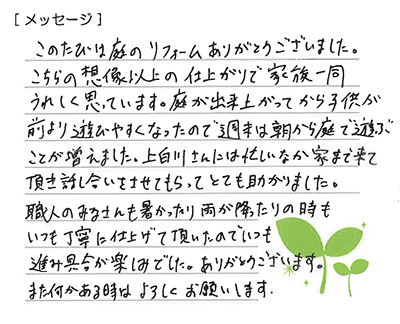 [メッセージ]
このたびは庭のリフォームありがとうございました。
こちらの想像以上の仕上がりで家族一同
うれしく思っています。庭が出来上がってから子供が
前より遊びやすくなったので週末は朝から庭で遊ぶ
ことが増えました。上白川さんには忙しいなか家まで来て
頂き話し合いをさせてもらってとても助かりました。
職人のみなさんも暑かったり雨が降ったりの時も
いつも丁寧に仕上げて頂いたのでいつも
進み具合が楽しみでした。ありがとうございます。
また何かある時はよろしくお願いします.